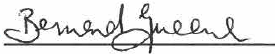 Bernard Greene